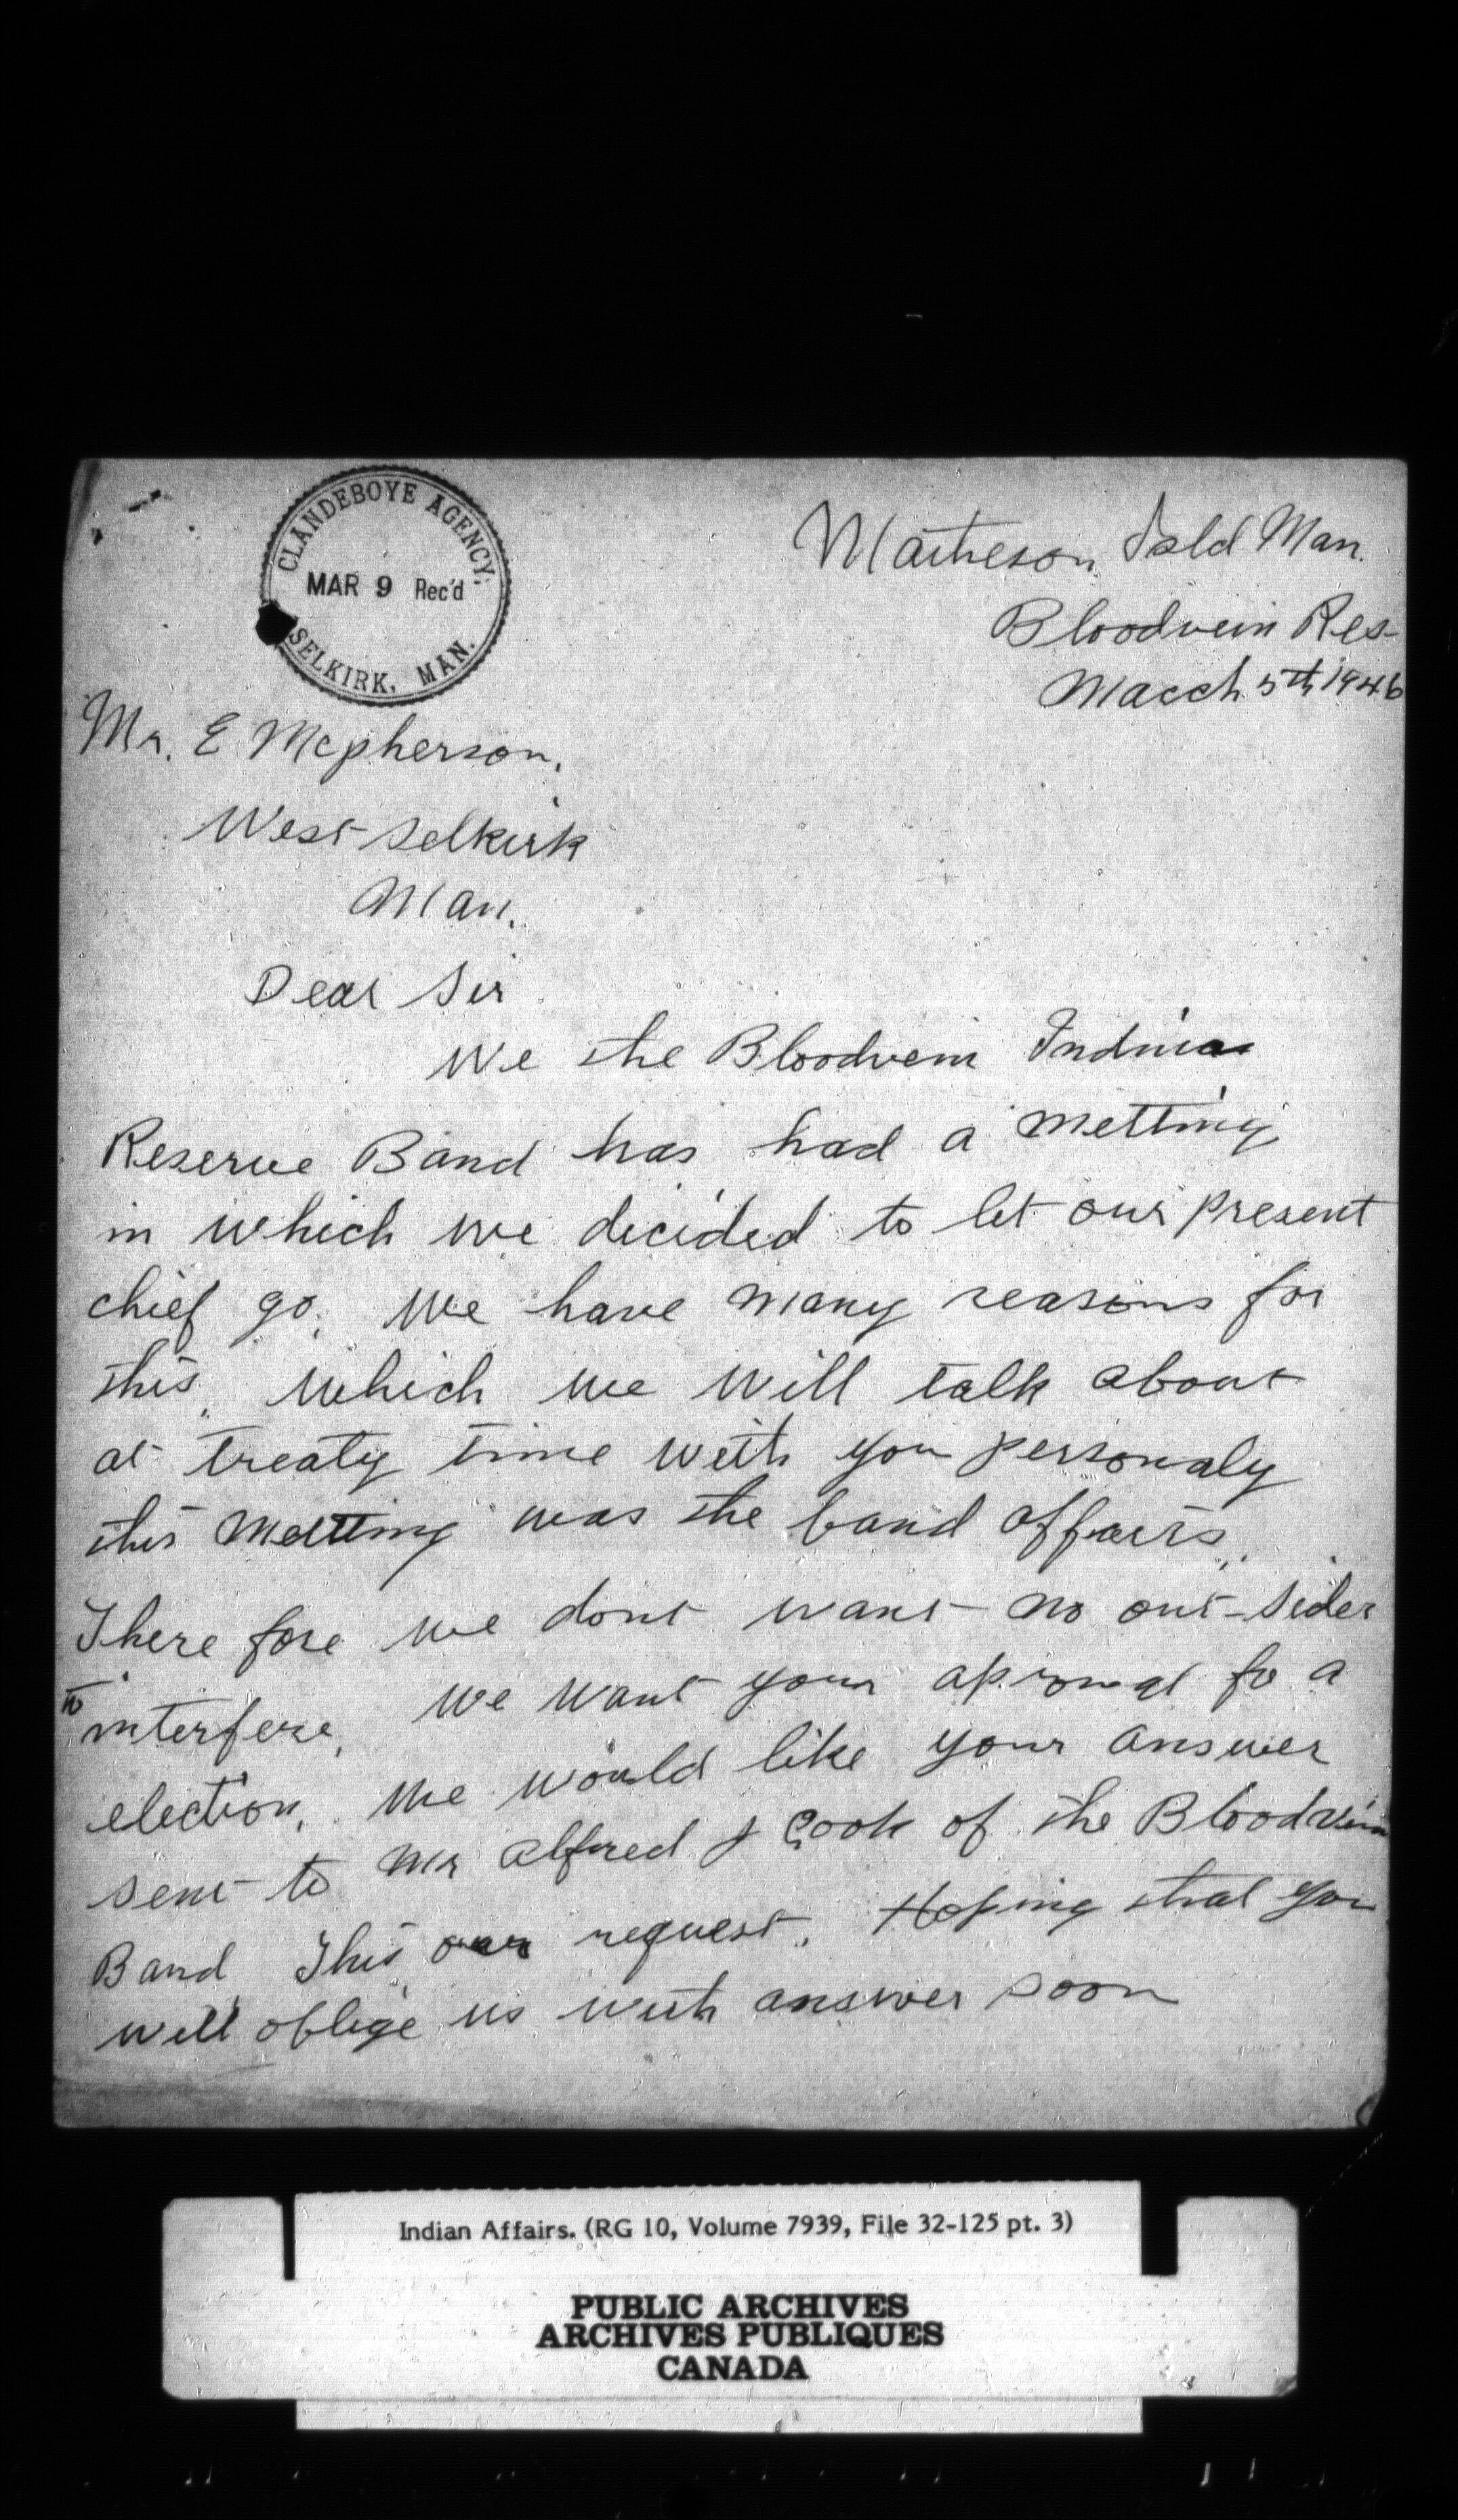 CLANDEBOYE AGENCY,
MAR 9 Rec'd
SELKIRK, MAN.
Matheson Isld Man.
Bloodvein Res-
March 5th 1946
Mr. E Mcpherson,
West Selkirk
Man.
Dear Sir
We the Bloodvein Indian
Reserve Band has had a metting
in which we decided to let our present
chief go. We have many reasons for
this, which we will talk about
at treaty time with you personaly
this metting was the band affairs.
There fore we dont want no out-sider
to interfere, we want your aproval fo a
election. We would like your answer
sent to Mr Alfred J Cook of the Bloodvein
Band This our request. Hoping that you
will oblige us with answer soon
Indian Affairs. (RG 10, Volume 7939, File 32-125 pt. 3)
PUBLIC ARCHIVES
ARCHIVES PUBLIQUES
CANADA